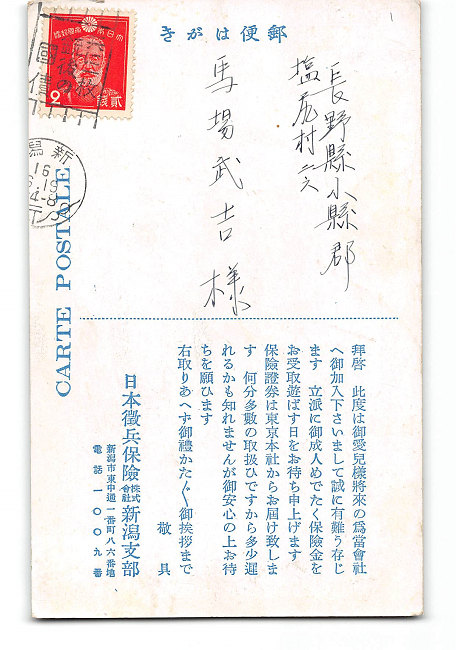 郵便はがき
大日本帝國郵便
貳銭
2
國債
新潟
16
19
8
CARTE POSTALE
長野縣小縣郡
塩尻村
馬場武吉様
拜啓 此度は御愛兒樣將來の爲當會社
へ御加入下さいまして誠に有難う存じ
ます 立派に御成人めでたく保險金を
お受取遊ばす日をお待ち申上げます
保險證券は東京本社からお屆け致しま
す 何分多數の取扱ひですから多少遲
れるかも知れませんが御安心の上お待
ちを願ひます
右取りあへず御禮かた〴〵御挨拶まで
敬具
日本徵兵保險株式會社新潟支部
新潟市東中通一番町八六番地
電話一〇〇九番
1